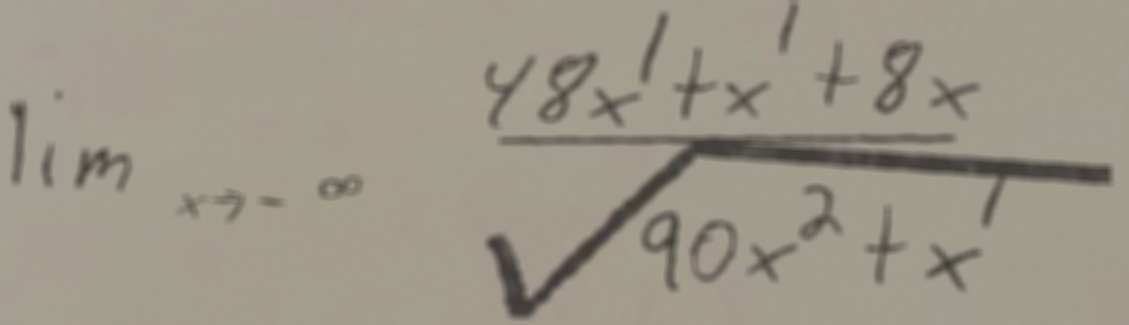 \lim_{x \to -\infty} \frac{48x^1 + x^1 + 8x}{\sqrt{90x^2 + x^1}}